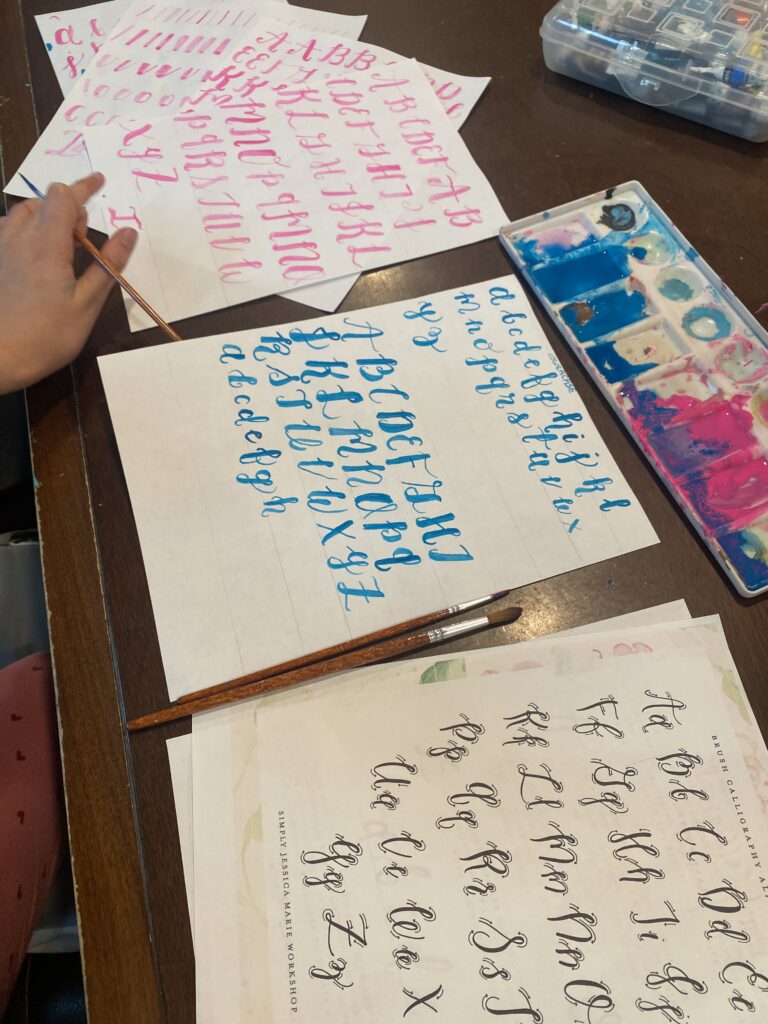 A A B B A B C D E F A B
C D E F G H I J
K L G H I J K L
M N O P Q M N O
P Q R S T U V W
X Y Z
I
a b c d e f g h i j k l
LOWERCASE
m n o p q r s t u v w x
y z
A B C D E F G H I
J K L M N O P Q
R S T U V W X Y Z
a b c d e f g h
BRUSH CALLIGRAPHY
Aa Bb Cc Dd Ee
Ff Gg Hh Ii Jj
Kk Ll Mm Nn O
Pp Qq Rr Ss T
Uu Vv Ww X
Yy Zz
SIMPLY JESSICA MARIE WORKSHOP